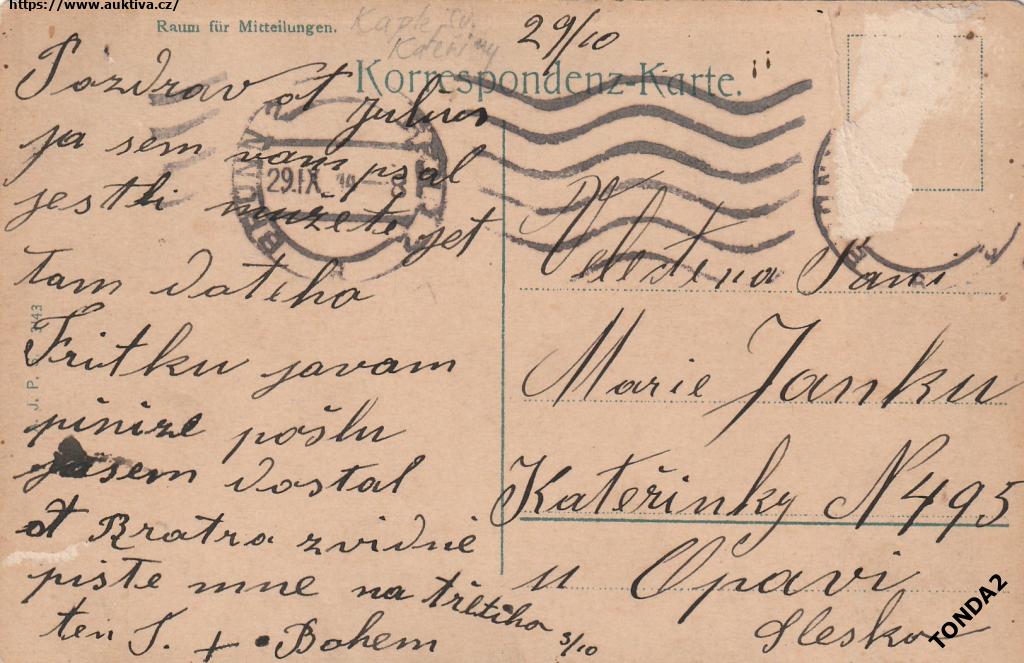 https://www.auktiva.cz/
Raum für Mitteilungen.
Kaple sv.
Kateřiny
29/10
Korrespondenz-Karte.
Pozdrav ot Julius
ja sem vam psal
jestli mužete jet
tam dotcho
Fritku javam
pinize pošlu
jasem dostal
ot Bratra zvidně
piste mne na třetiho
ten J. + Bohem 3/10
BRÜNN 2
29.IX
J. P. 3143
Velectena Pani
Marie Janku
Kateřinky N 495
u Opavi
Slesko
TONDA2